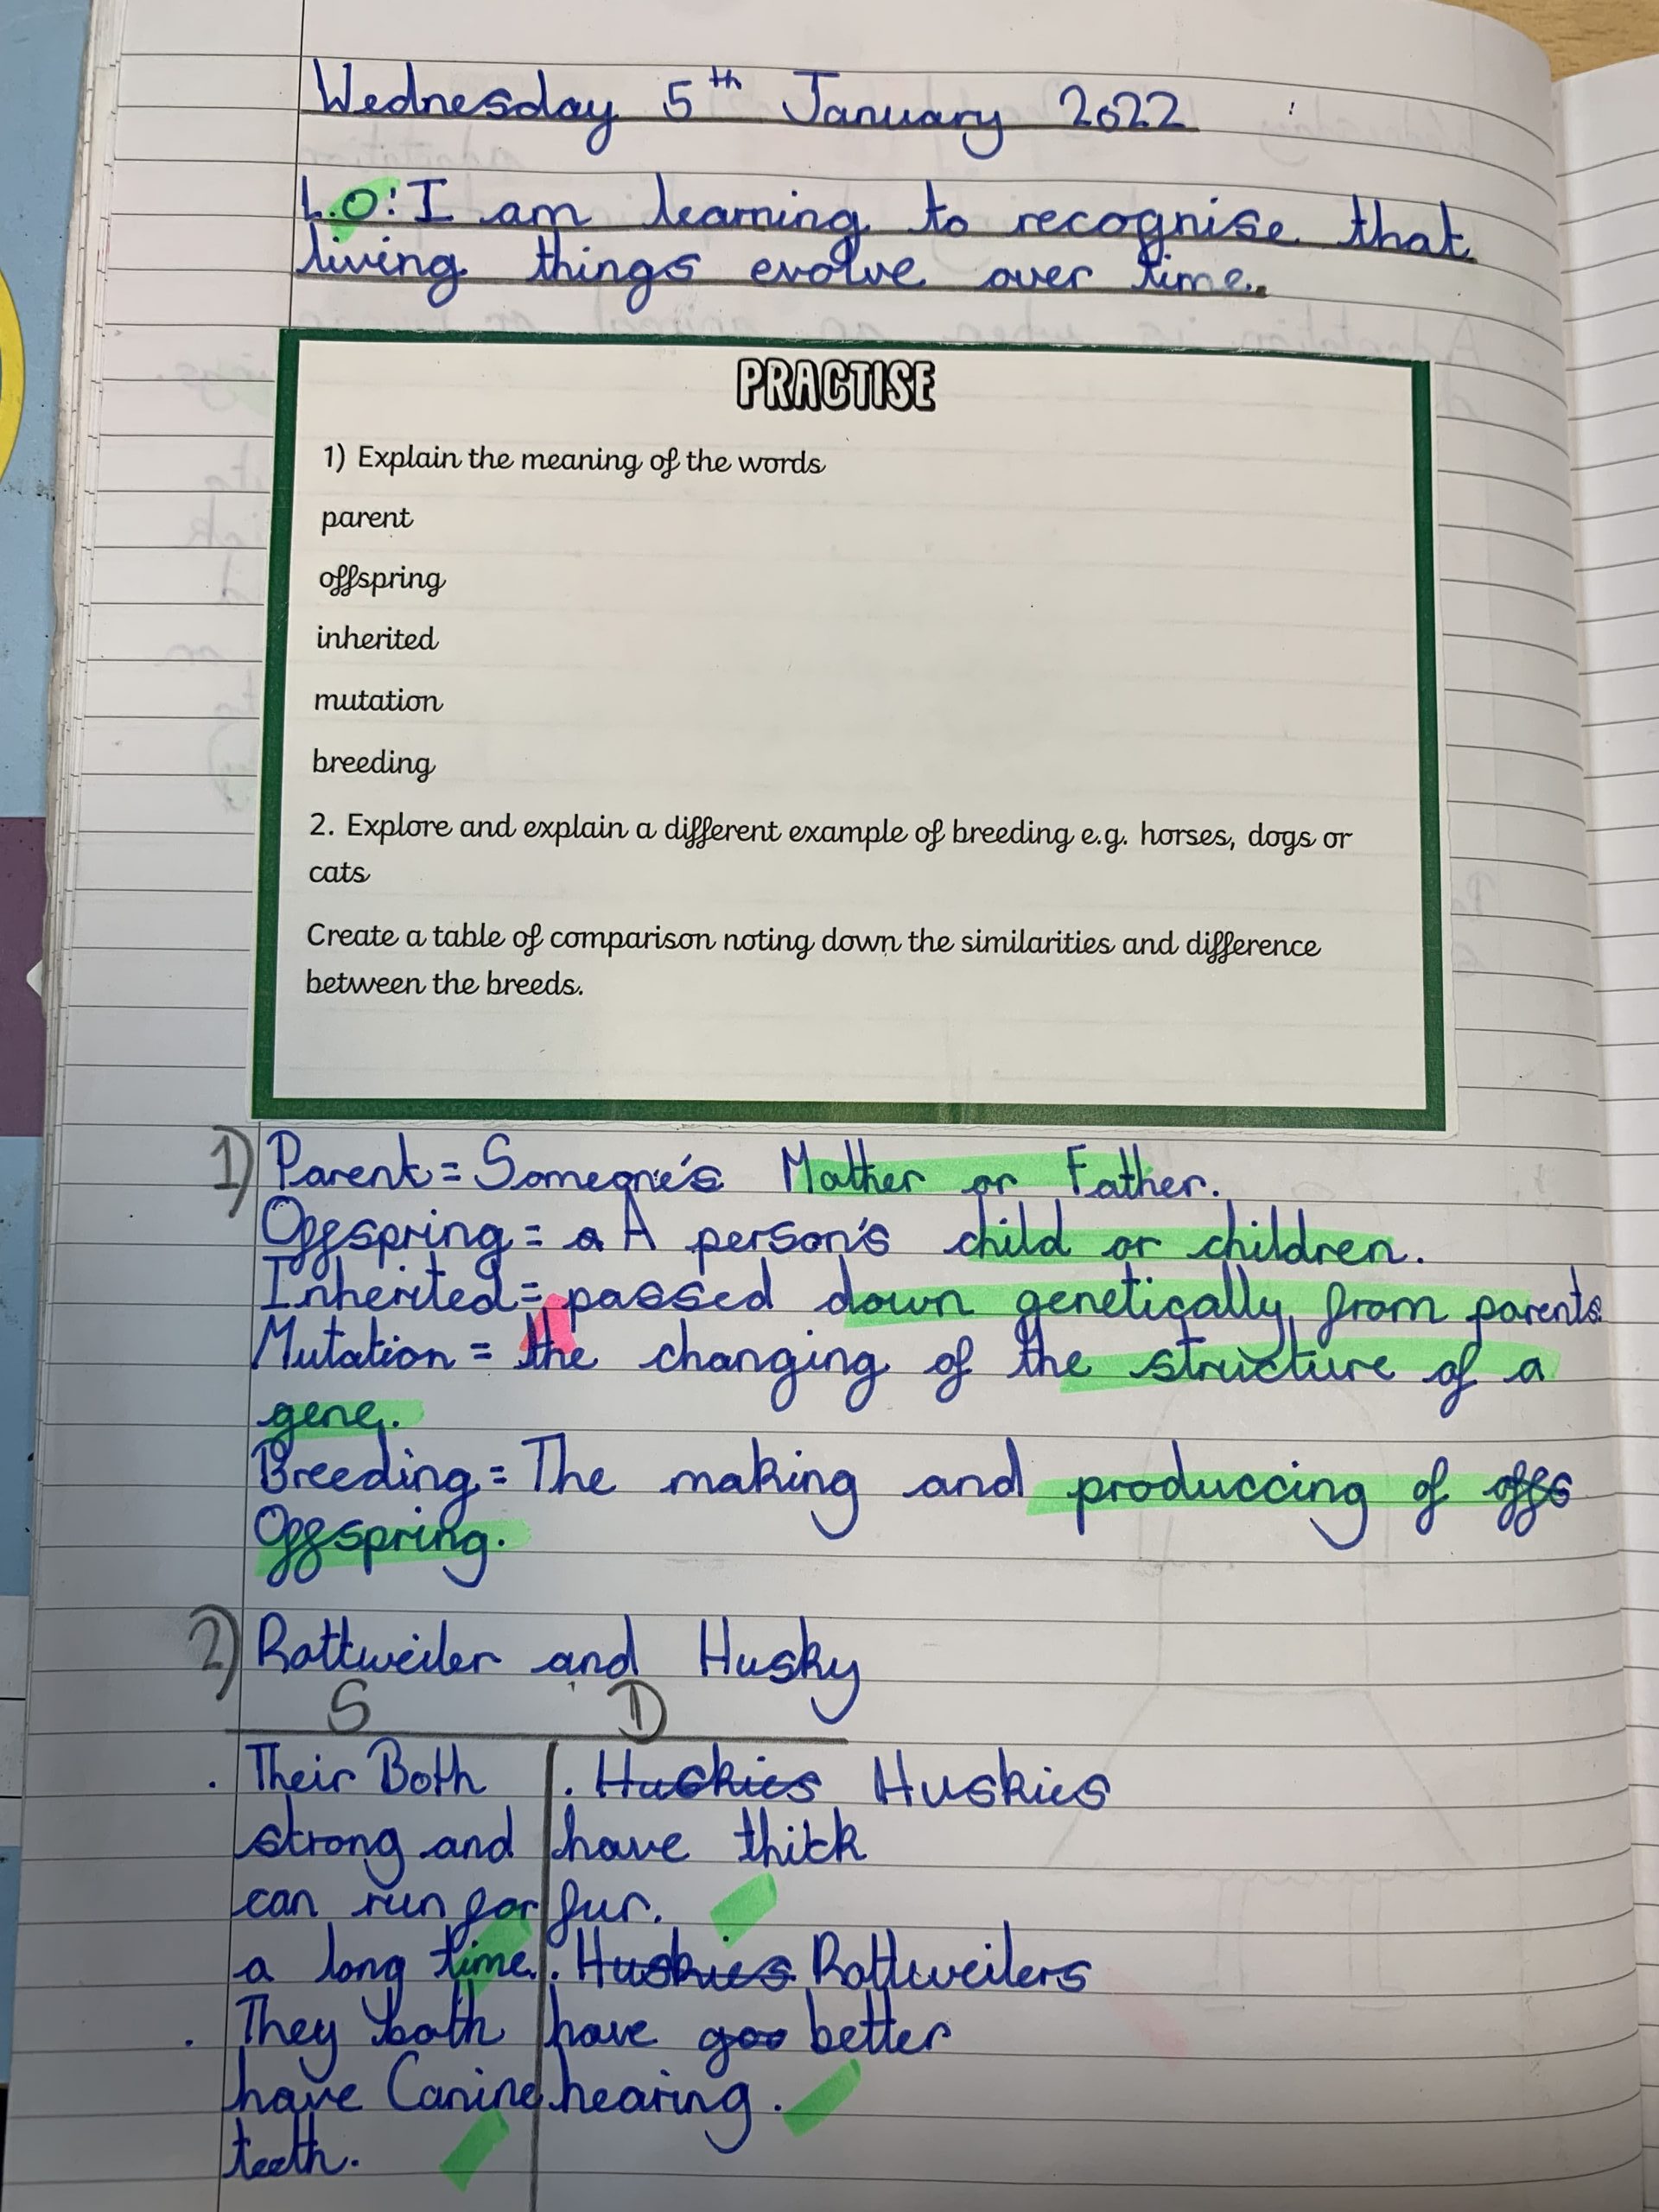 Wednesday 5th January 2022
L.O: I am learning to recognise that
living things evolve over time.
PRACTISE
1) Explain the meaning of the words
parent
offspring
inherited
mutation
breeding
2. Explore and explain a different example of breeding e.g. horses, dogs or
cats
Create a table of comparison noting down the similarities and difference
between the breeds.
1) Parent = Someone's Mother or Father.
Offspring = a A person's child or children.
Inherited = passed down genetically from parents.
Mutation = the changing of the structure of a
gene.
Breeding = The making and produccing of offs
Offspring.
2) Rottweiler and Husky
S D
. Their Both
strong and
can run for
a long time.
. They both
have Canine
teeth.
. Huskies Huskies
have thick
fur.
. Huskies Rottweilers
have goo better
hearing.